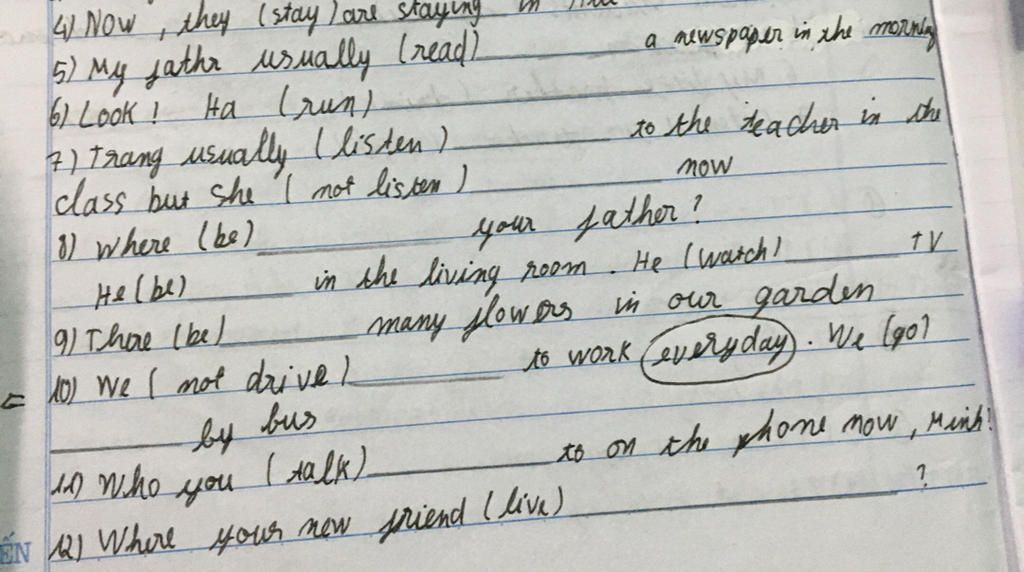 4) Now, they (stay) are staying in
5) My fathr usually (read) __________ a newspaper in the morning
6) Look! Ha (run) __________
7) Trang usually (listen) __________ to the teacher in the
class but she (not listen) __________ now
8) Where (be) __________ your father?
He (be) __________ in the living room. He (watch) __________ TV
9) There (be) __________ many flowers in our garden
10) We (not drive) __________ to work everyday. We (go)
__________ by bus
11) Who you (talk) __________ to on the phone now, Minh!
12) Where your new friend (live) __________ ?
ẾN